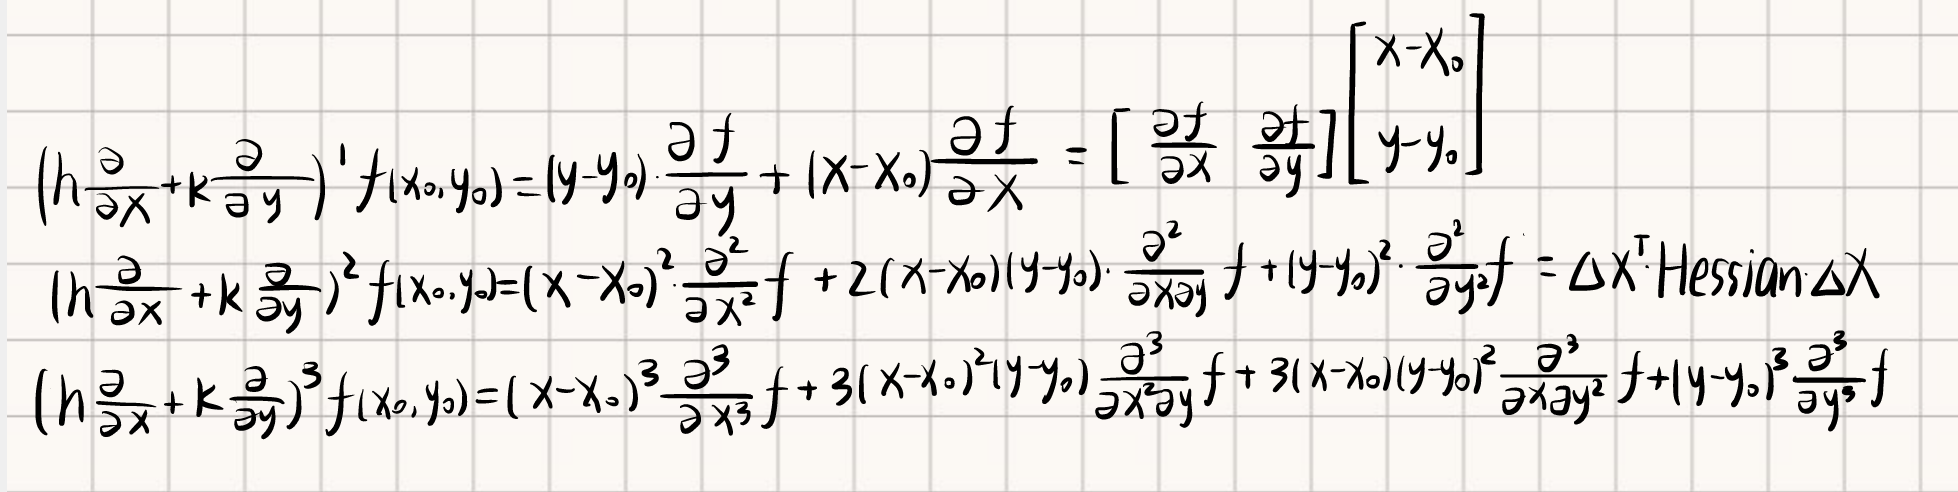 (h ∂/∂x + k ∂/∂y)¹ f(x₀,y₀) = (y-y₀)·∂f/∂y + (x-x₀) ∂f/∂x = [∂f/∂x ∂f/∂y] [x-x₀; y-y₀]
(h ∂/∂x + k ∂/∂y)² f(x₀,y₀) = (x-x₀)²·∂²/∂x² f + 2(x-x₀)(y-y₀)·∂²/∂x∂y f + (y-y₀)²·∂²/∂y² f = Δxᵀ·Hessian·Δx
(h ∂/∂x + k ∂/∂y)³ f(x₀,y₀) = (x-x₀)³ ∂³/∂x³ f + 3(x-x₀)²(y-y₀) ∂³/∂x²∂y f + 3(x-x₀)(y-y₀)² ∂³/∂x∂y² f + (y-y₀)³ ∂³/∂y³ f